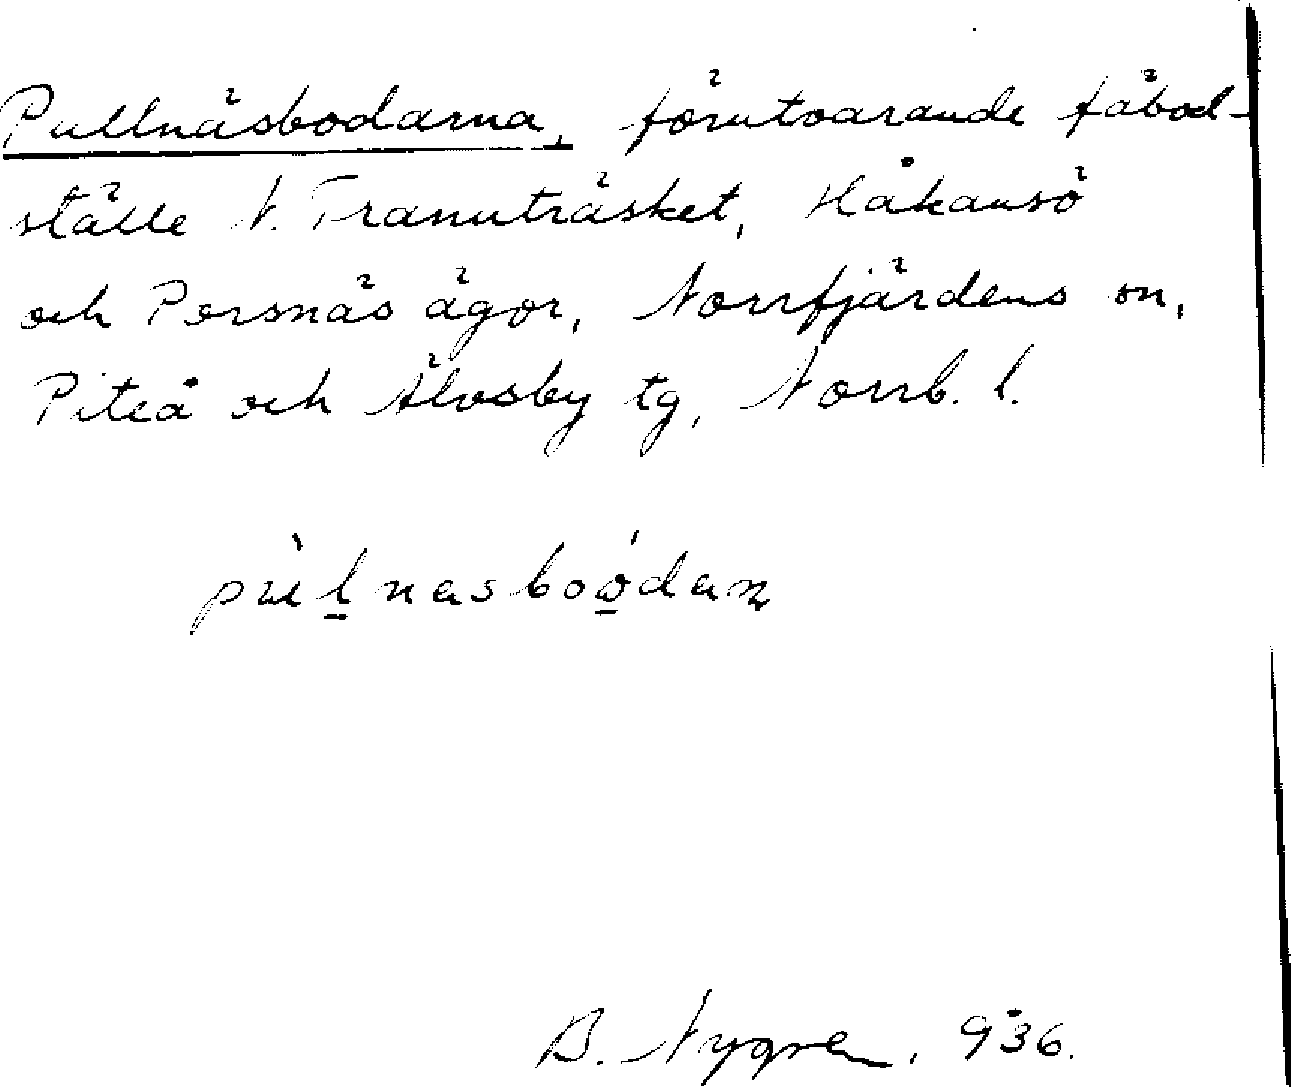 Pullnäsbodarna, förutvarande fäbod-
ställe N. Tranuträsket, Håkansö
och Porsnäs ägor, Norrfjärdens sn,
Piteå och Älvsby tg, Norrb. l.
pùlnasboódan
B. Nygren, 936.